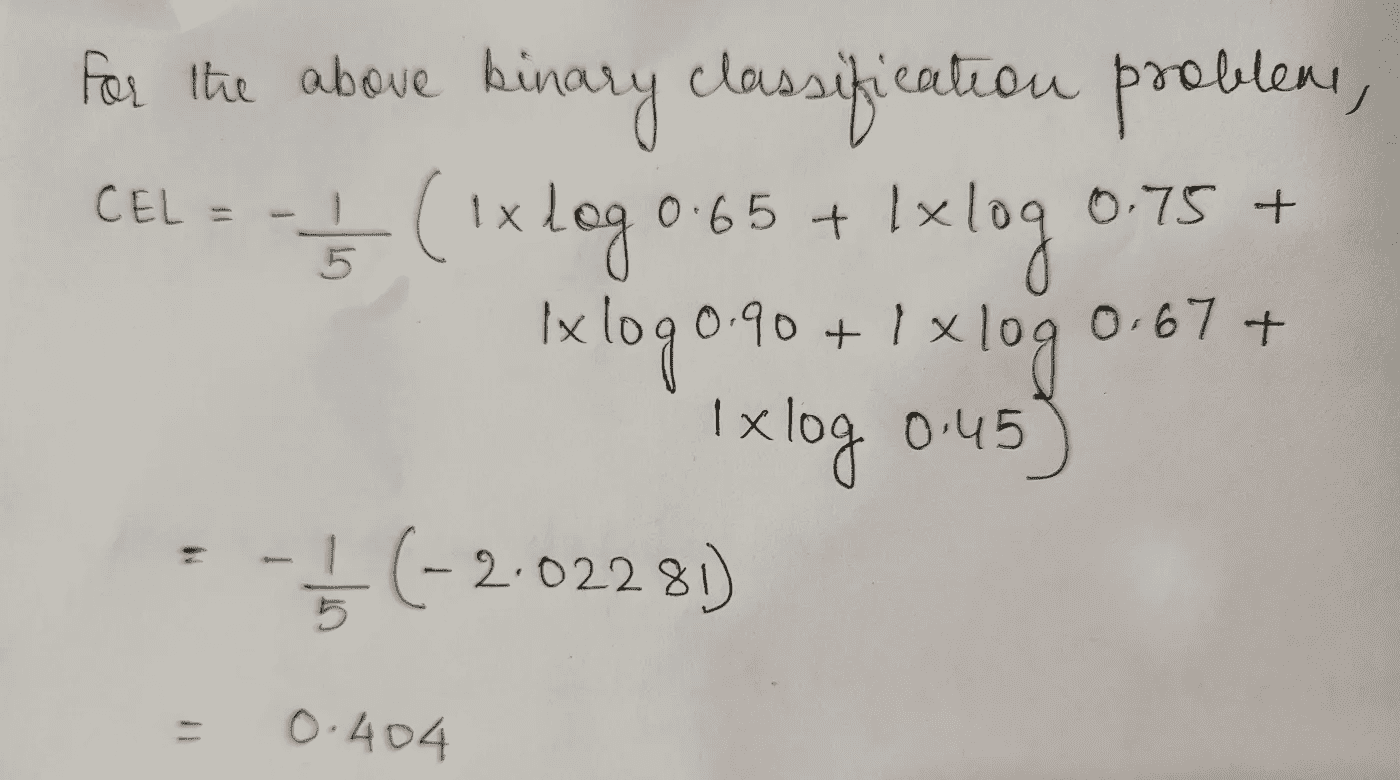 For the above binary classification problem,
CEL = - 1/5 ( 1 x log 0.65 + 1 x log 0.75 +
1 x log 0.90 + 1 x log 0.67 +
1 x log 0.45 )
= - 1/5 ( - 2.02281 )
= 0.404